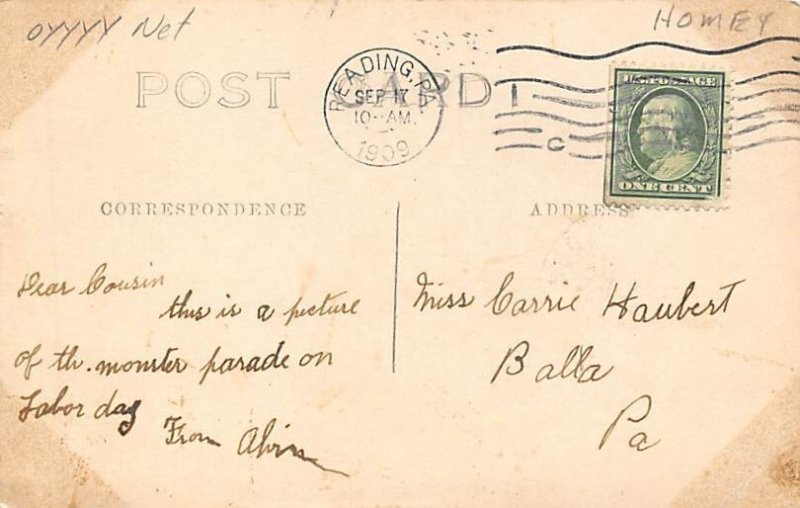 OYYYY Net
HOMEY
POST CARD
READING, PA.
SEP 17
10-AM.
1909
C
ONE CENT
CORRESPONDENCE
ADDRESS
Dear Cousin
this is a picture
of th. monster parade on
Labor day
From Alvin
Miss Carrie Haubert
Balla
Pa